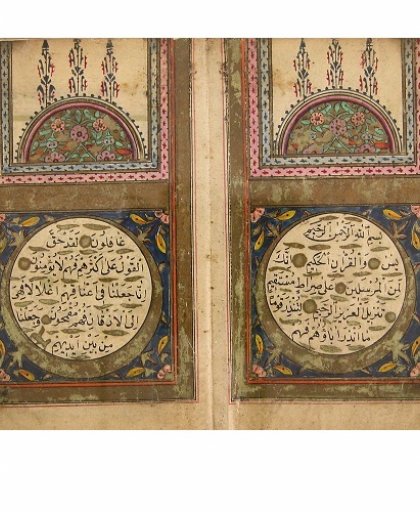 بسم الله الرحمن الرحيم
يس والقرآن الحكيم انك
لمن المرسلين على صراط مستقيم
تنزيل العزيز الرحيم لتنذر قوما
ما انذر اباؤهم فهم
غافلون لقد حق
القول على اكثرهم فهم لا يؤمنون
انا جعلنا في اعناقهم اغلالا فهي
الى الاذقان فهم مقمحون وجعلنا
من بين ايديهم